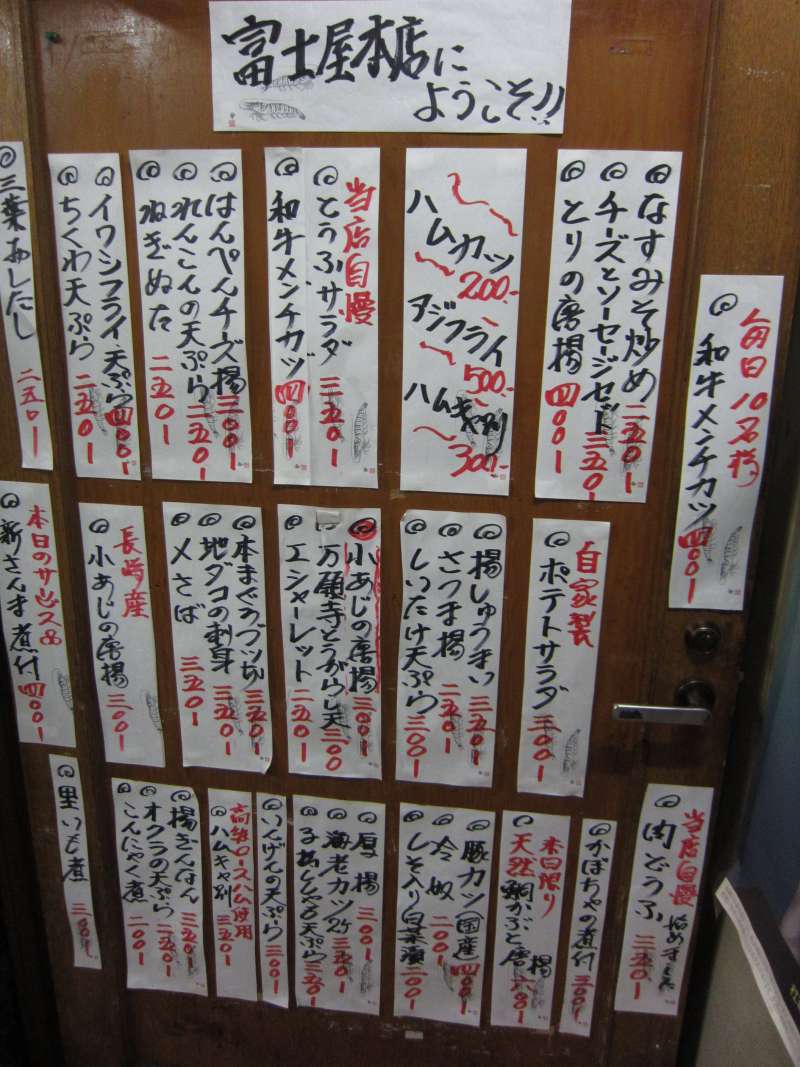 富士屋本店に
ようこそ!!
毎日10名様
和牛メンチカツ 四〇〇一
なすみそ炒め 二五〇一
チーズとソーセージセット 三五〇一
とりの唐揚 四〇〇一
ハムカツ
200.-
アジフライ
500.-
ハムキャ別
300.-
当店自慢
とうふサラダ 三五〇一
和牛メンチカツ 四〇〇一
はんぺんチーズ揚 三〇〇一
れんこんの天ぷら 二五〇一
ねぎぬた 二五〇一
イワシフライ、天ぷら 四〇〇一
ちくわ天ぷら 二五〇一
三葉おしたし 二五〇一
自家製
ポテトサラダ 三〇〇一
揚しゅうまい 三五〇一
さつま揚 二五〇一
しいたけ天ぷら 三〇〇一
小あじの唐揚 三〇〇一
万願寺とうがらし天 三〇〇
エシャーレット 二五〇一
本まぐろブツ切 三五〇一
地ダコの刺身 三五〇一
〆さば 三五〇一
長崎産
小あじの唐揚 三〇〇一
本日のサービス品
新さんま煮付 四〇〇一
当店自慢 始めました
肉どうふ 三五〇一
かぼちゃの煮付 三〇〇一
本日限り
天然鯛かぶと唐揚 六〇〇一
豚カツ(国産) 四〇〇一
冷奴 二〇〇一
しそ入り白菜漬 二〇〇一
厚揚 三〇〇一
海老カツ2ケ 三五〇一
子持ししゃも天ぷら 三五〇一
いんげんの天ぷら 三〇〇一
高級ロースハム使用
ハムキャ別 三五〇一
揚ぎんなん 三五〇一
オクラの天ぷら 二五〇一
こんにゃく煮 二〇〇一
里いも煮 三〇〇一